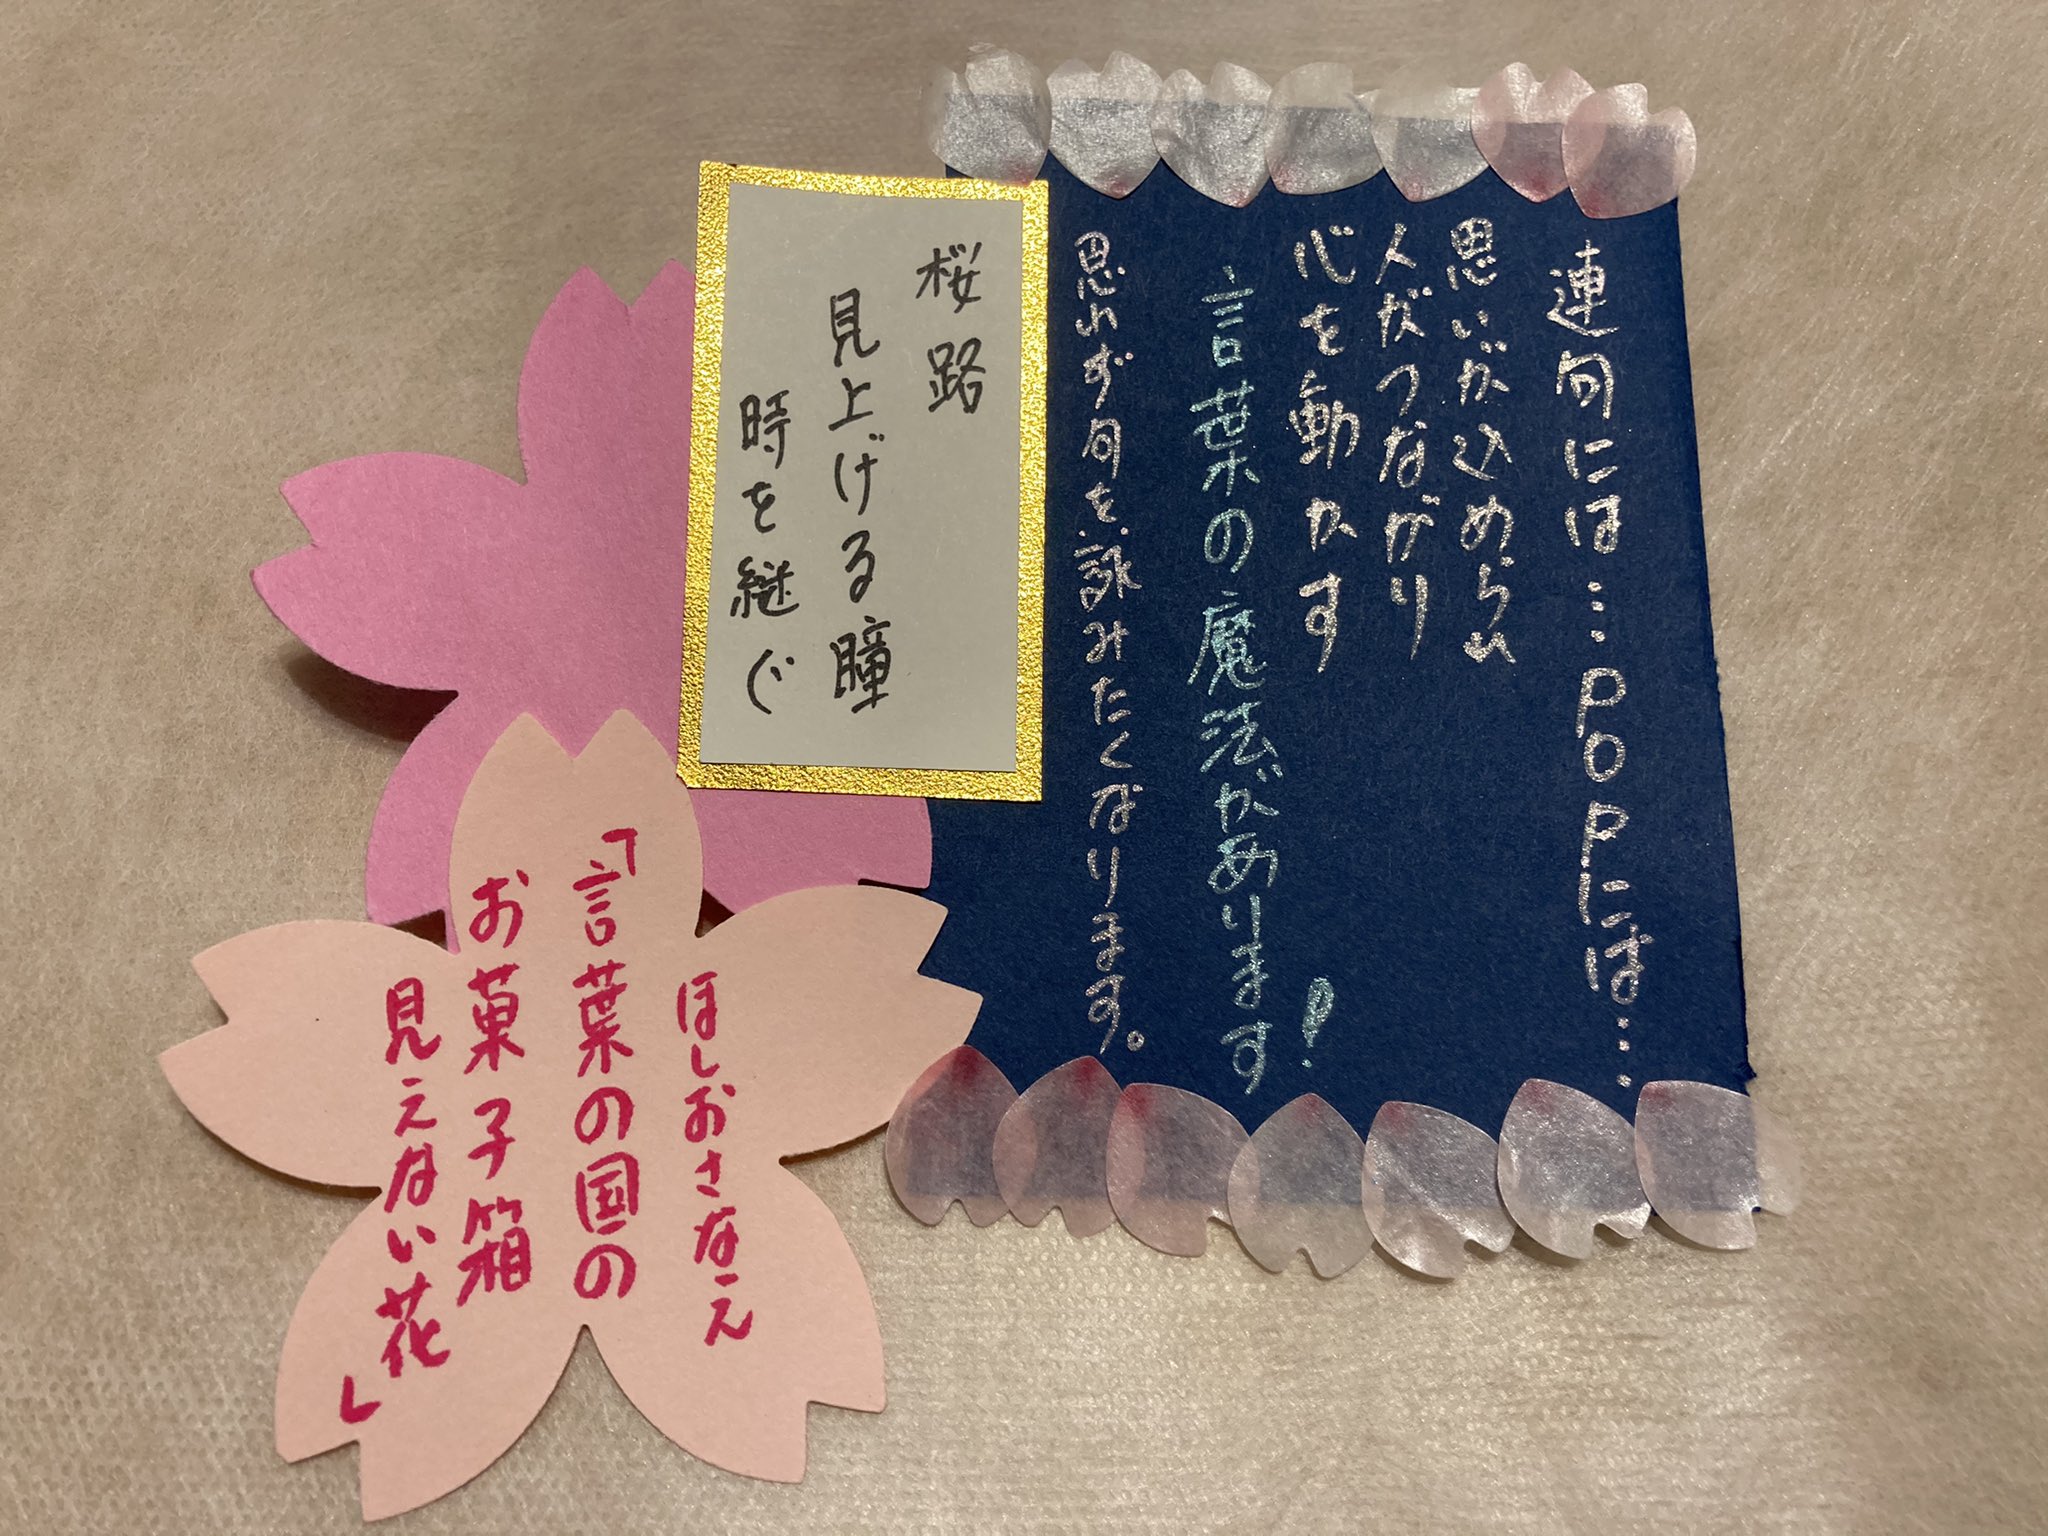 連句には…POPには…
思いが込められ
人がつながり
心を動かす
言葉の魔法があります!
思わず句を詠みたくなります。
桜路
見上げる瞳
時を継ぐ
ほしおさなえ
「言葉の国の
お菓子箱
見えない花」